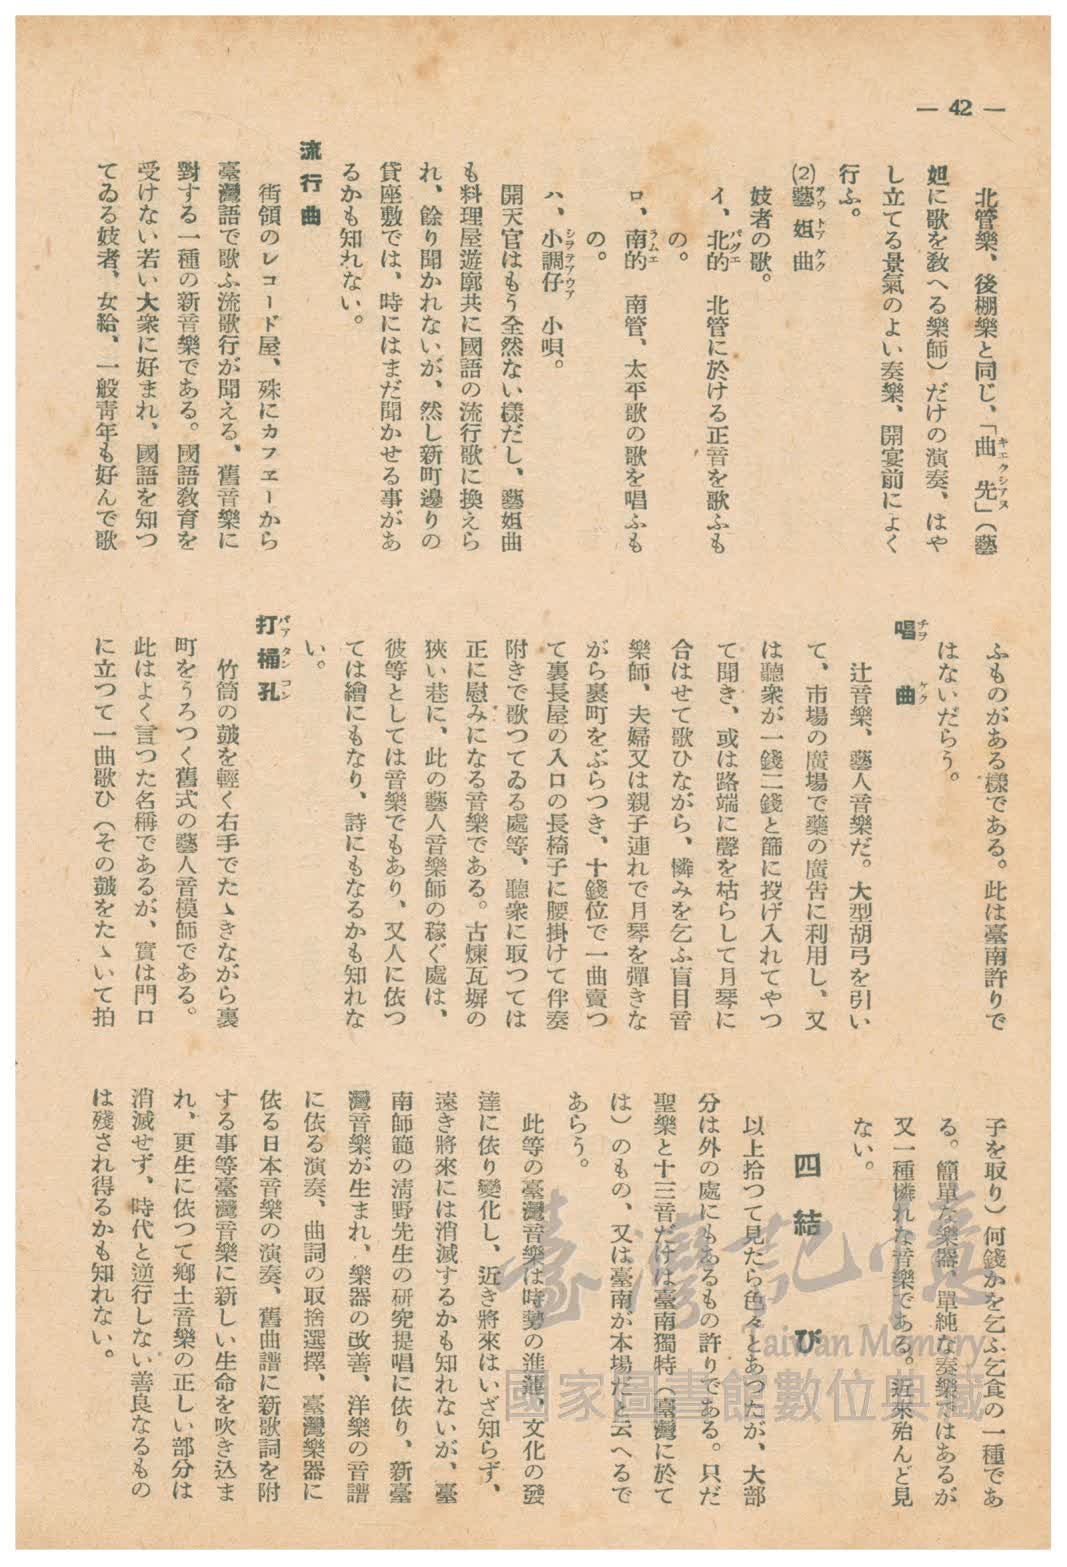 — 42 —
北管樂、後棚樂と同じ、「曲先」（藝
妲に歌を敎へる樂師）だけの演奏、はや
し立てる景氣のよい奏樂、開宴前によく
行ふ。
(2)藝妲曲
妓者の歌。
イ、北的　北管に於ける正音を歌ふも
の。
ロ、南的　南管、太平歌の歌を唱ふも
の。
ハ、小調仔　小唄。
開天官はもう全然ない樣だし、藝妲曲
も料理屋遊廓共に國語の流行歌に換えら
れ、餘り聞かれないが、然し新町邊りの
貸座敷では、時にはまだ聞かせる事があ
るかも知れない。
流行曲
街頭のレコード屋、殊にカフエーから
臺灣語で歌ふ流歌行が聞える、舊音樂に
對する一種の新音樂である。國語敎育を
受けない若い大衆に好まれ、國語を知つ
てゐる妓者、女給、一般靑年も好んで歌
ふものがある樣である。此は臺南許りで
はないだらう。
唱曲
辻音樂、藝人音樂だ。大型胡弓を引い
て、市場の廣場で藥の廣吿に利用し、又
は聽衆が一錢二錢と篩に投げ入れてやつ
て聞き、或は路端に聲を枯らして月琴に
合はせて歌ひながら、憐みを乞ふ盲目音
樂師、夫婦又は親子連れで月琴を彈きな
がら裏町をぶらつき、十錢位で一曲賣つ
て裏長屋の入口の長椅子に腰掛けて伴奏
附きで歌つてゐる處等、聽衆に取つては
正に慰みになる音樂である。古煉瓦塀の
狹い巷に、此の藝人音樂師の稼ぐ處は、
彼等としては音樂でもあり、又人に依つ
ては繪にもなり、詩にもなるかも知れな
い。
打桶孔
竹筒の鼓を輕く右手でたゝきながら裏
町をうろつく舊式の藝人音模師である。
此はよく言つた名稱であるが、實は門口
に立つて一曲歌ひ（その鼓をたゝいて拍
子を取り）何錢かを乞ふ乞食の一種であ
る。簡單な樂器、單純な奏樂ではあるが
又一種憐れな音樂である。近來殆んど見
ない。
四結び
以上拾つて見たら色々とあつたが、大部
分は外の處にもあるもの許りである。只だ
聖樂と十三音だけは臺南獨特（臺灣に於て
は）のもの、又は臺南が本場だと云へるで
あらう。
此等の臺灣音樂は時勢の進運、文化の發
達に依り變化し、近き將來はいざ知らず、
遠き將來には消滅するかも知れないが、臺
南師範の淸野先生の硏究提唱に依り、新臺
灣音樂が生まれ、樂器の改善、洋樂の音譜
に依る演奏、曲詞の取捨選擇、臺灣樂器に
依る日本音樂の演奏、舊曲譜に新歌詞を附
する事等臺灣音樂に新しい生命を吹き込ま
れ、更生に依つて鄕土音樂の正しい部分は
消滅せず、時代と逆行しない善良なるもの
は殘され得るかも知れない。
臺灣記憶
Taiwan Memory
國家圖書館數位典藏